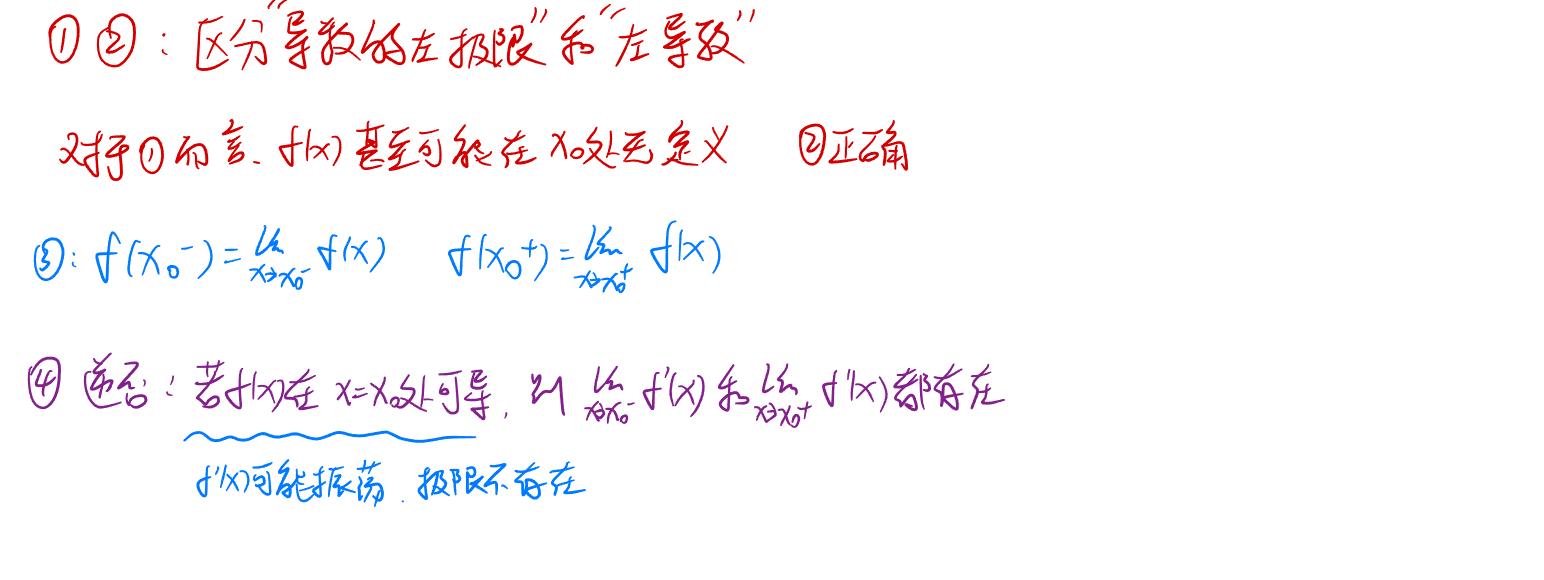 ①②：区分“导数的左极限”和“左导数”
对于①而言、f(x)甚至可能在x₀处无定义 ②正确
③: f(x₀⁻)=lim_{x→x₀⁻} f(x) f(x₀⁺)=lim_{x→x₀⁺} f(x)
④ 逆否：若f(x)在x=x₀处可导, 则 lim_{x→x₀⁻} f'(x)和lim_{x→x₀⁺} f'(x)都存在
f'(x)可能振荡.极限不存在